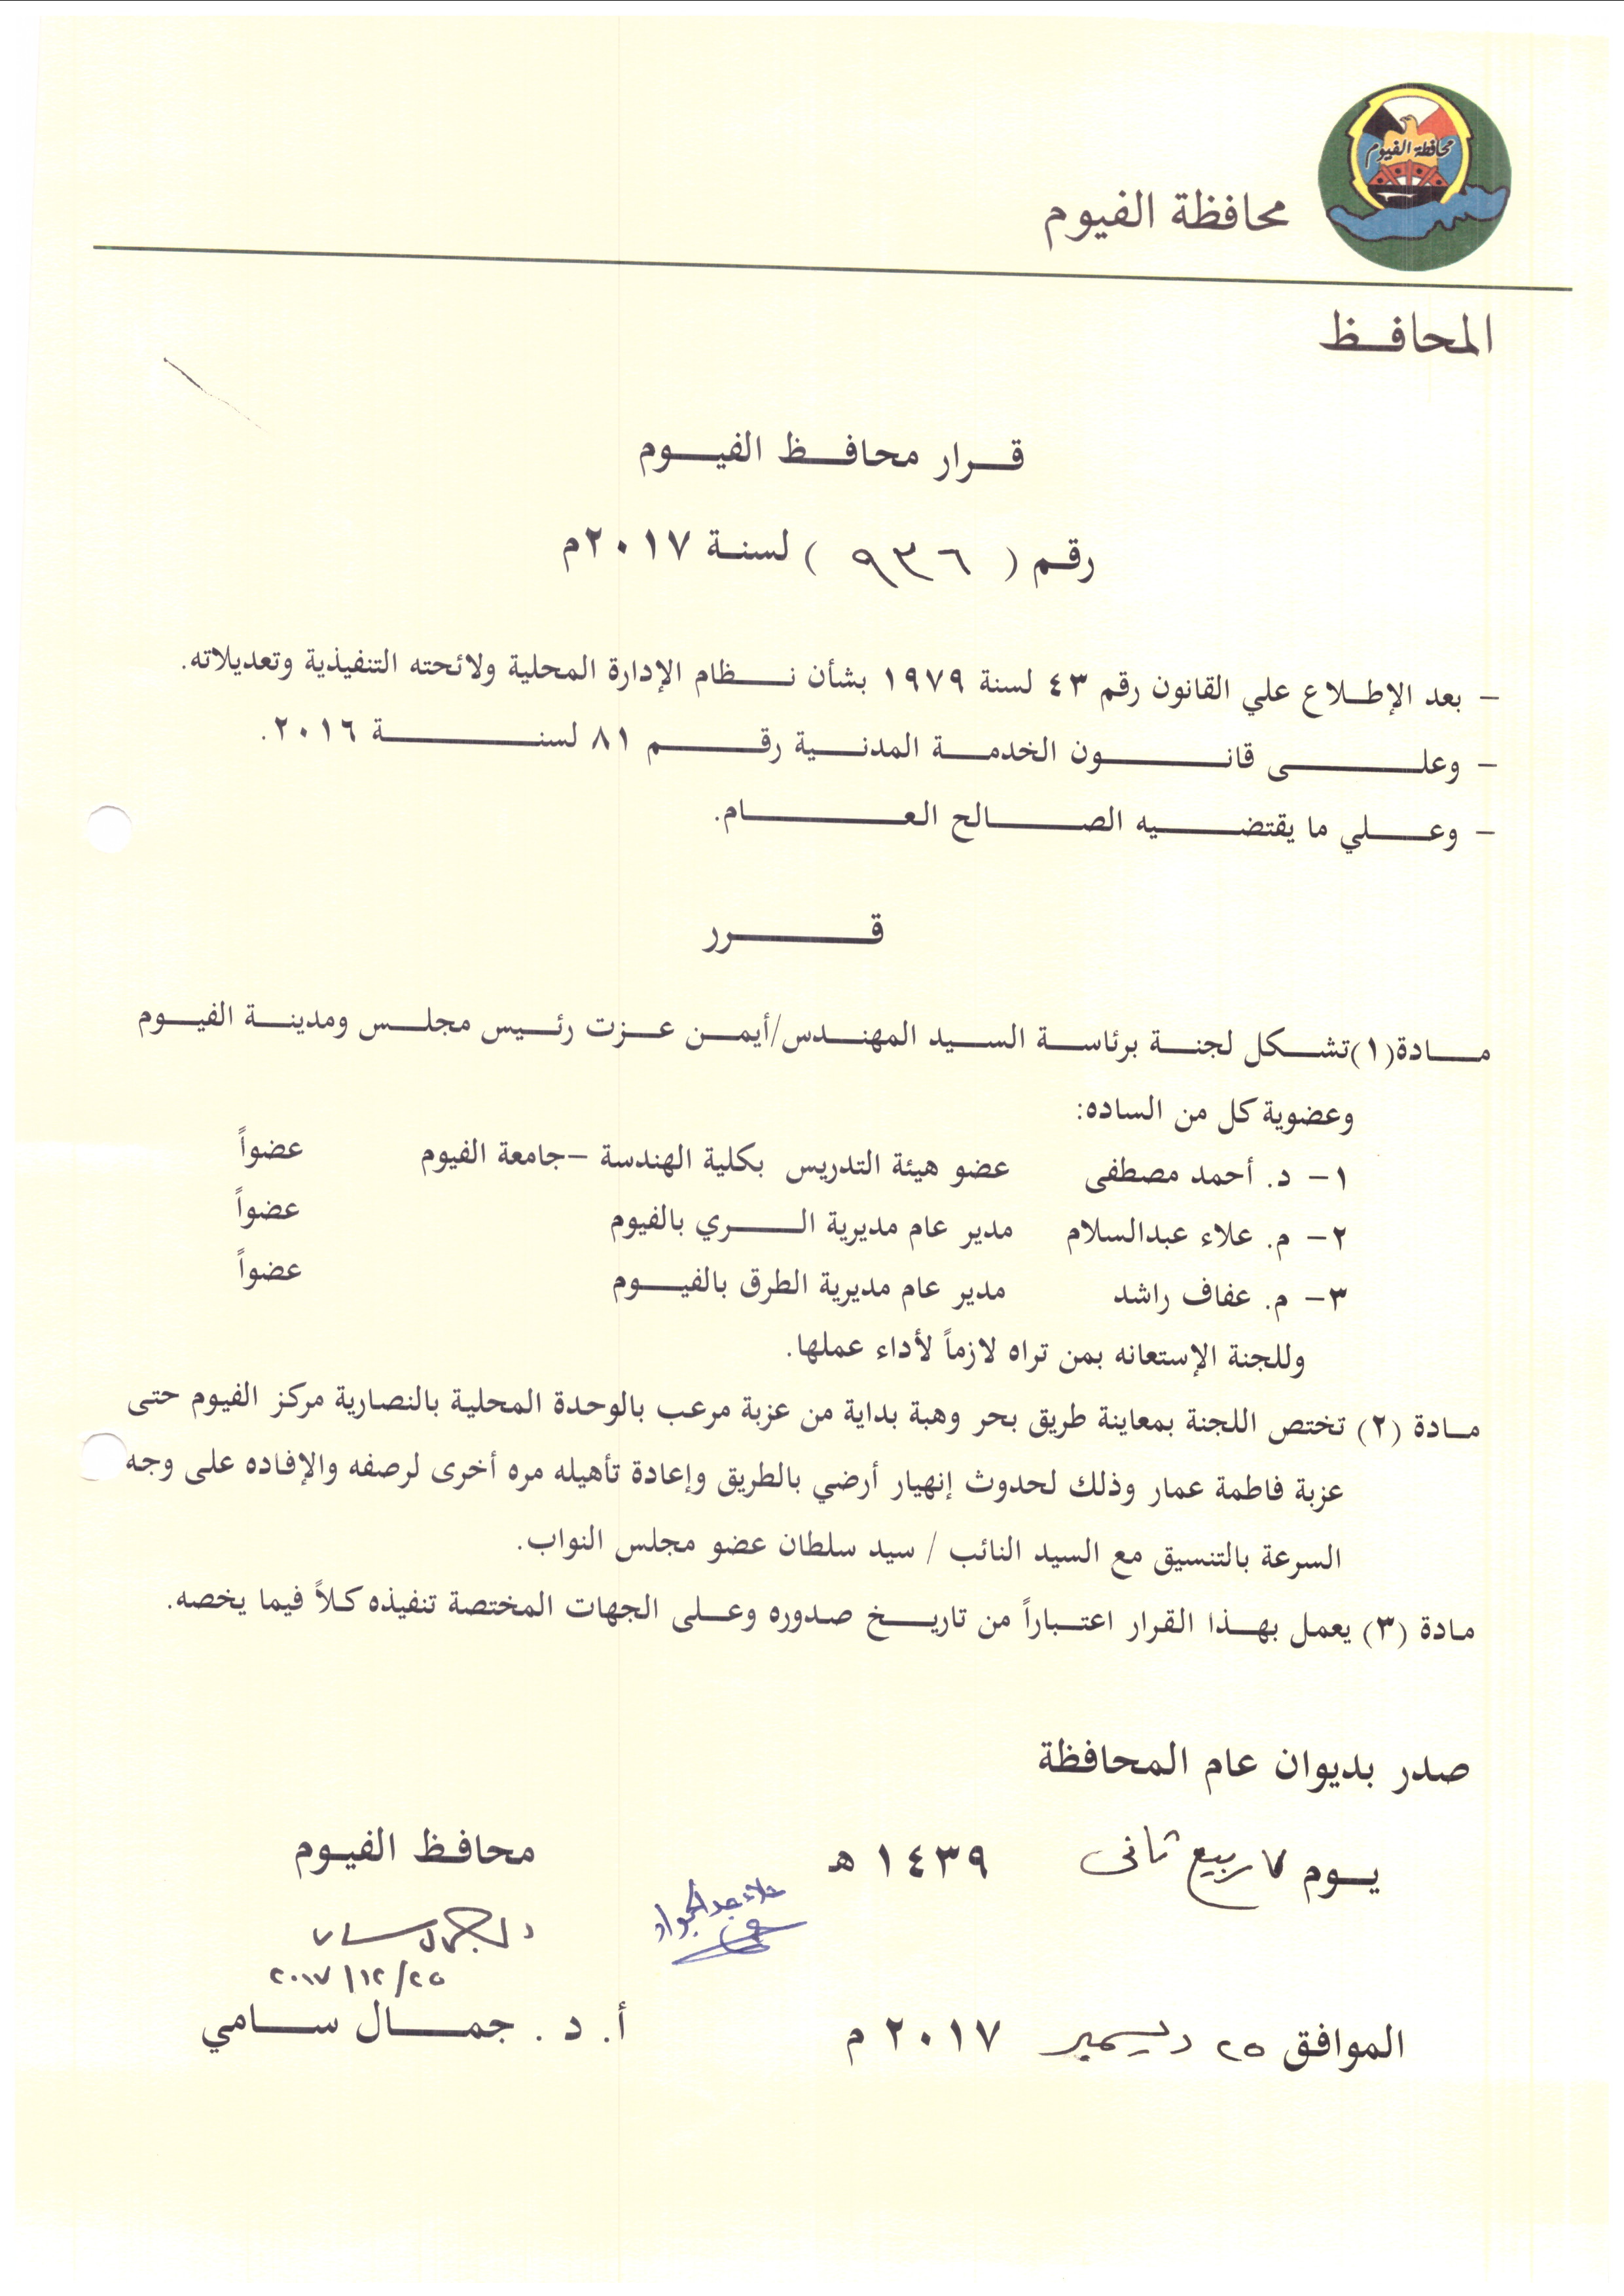 محافظة الفيوم
محافظة الفيوم
المحافظ
قرار محافظ الفيوم
رقم ( ٩٣٦ ) لسنة ٢٠١٧م
- بعد الإطلاع علي القانون رقم ٤٣ لسنة ١٩٧٩ بشأن نظام الإدارة المحلية ولائحته التنفيذية وتعديلاته.
- وعلى قانون الخدمة المدنية رقم ٨١ لسنة ٢٠١٦.
- وعلي ما يقتضيه الصالح العام.
قرر
مادة(١)تشكل لجنة برئاسة السيد المهندس/أيمن عزت رئيس مجلس ومدينة الفيوم
وعضوية كل من الساده:
١- د. أحمد مصطفى عضو هيئة التدريس بكلية الهندسة -جامعة الفيوم عضواً
٢- م. علاء عبدالسلام مدير عام مديرية الري بالفيوم عضواً
٣- م. عفاف راشد مدير عام مديرية الطرق بالفيوم عضواً
وللجنة الإستعانه بمن تراه لازماً لأداء عملها.
مادة (٢) تختص اللجنة بمعاينة طريق بحر وهبة بداية من عزبة مرعب بالوحدة المحلية بالنصارية مركز الفيوم حتى
عزبة فاطمة عمار وذلك لحدوث إنهيار أرضي بالطريق وإعادة تأهيله مره أخرى لرصفه والإفاده على وجه
السرعة بالتنسيق مع السيد النائب / سيد سلطان عضو مجلس النواب.
مادة (٣) يعمل بهذا القرار اعتباراً من تاريخ صدوره وعلى الجهات المختصة تنفيذه كلاً فيما يخصه.
صدر بديوان عام المحافظة
يوم ٧ ربيع ثانى ١٤٣٩ هـ
محافظ الفيوم
علاء عبد الجواد
٢٠١٧/١٢/٢٥
الموافق ٢٥ ديسمبر ٢٠١٧ م
أ. د . جمال سامي